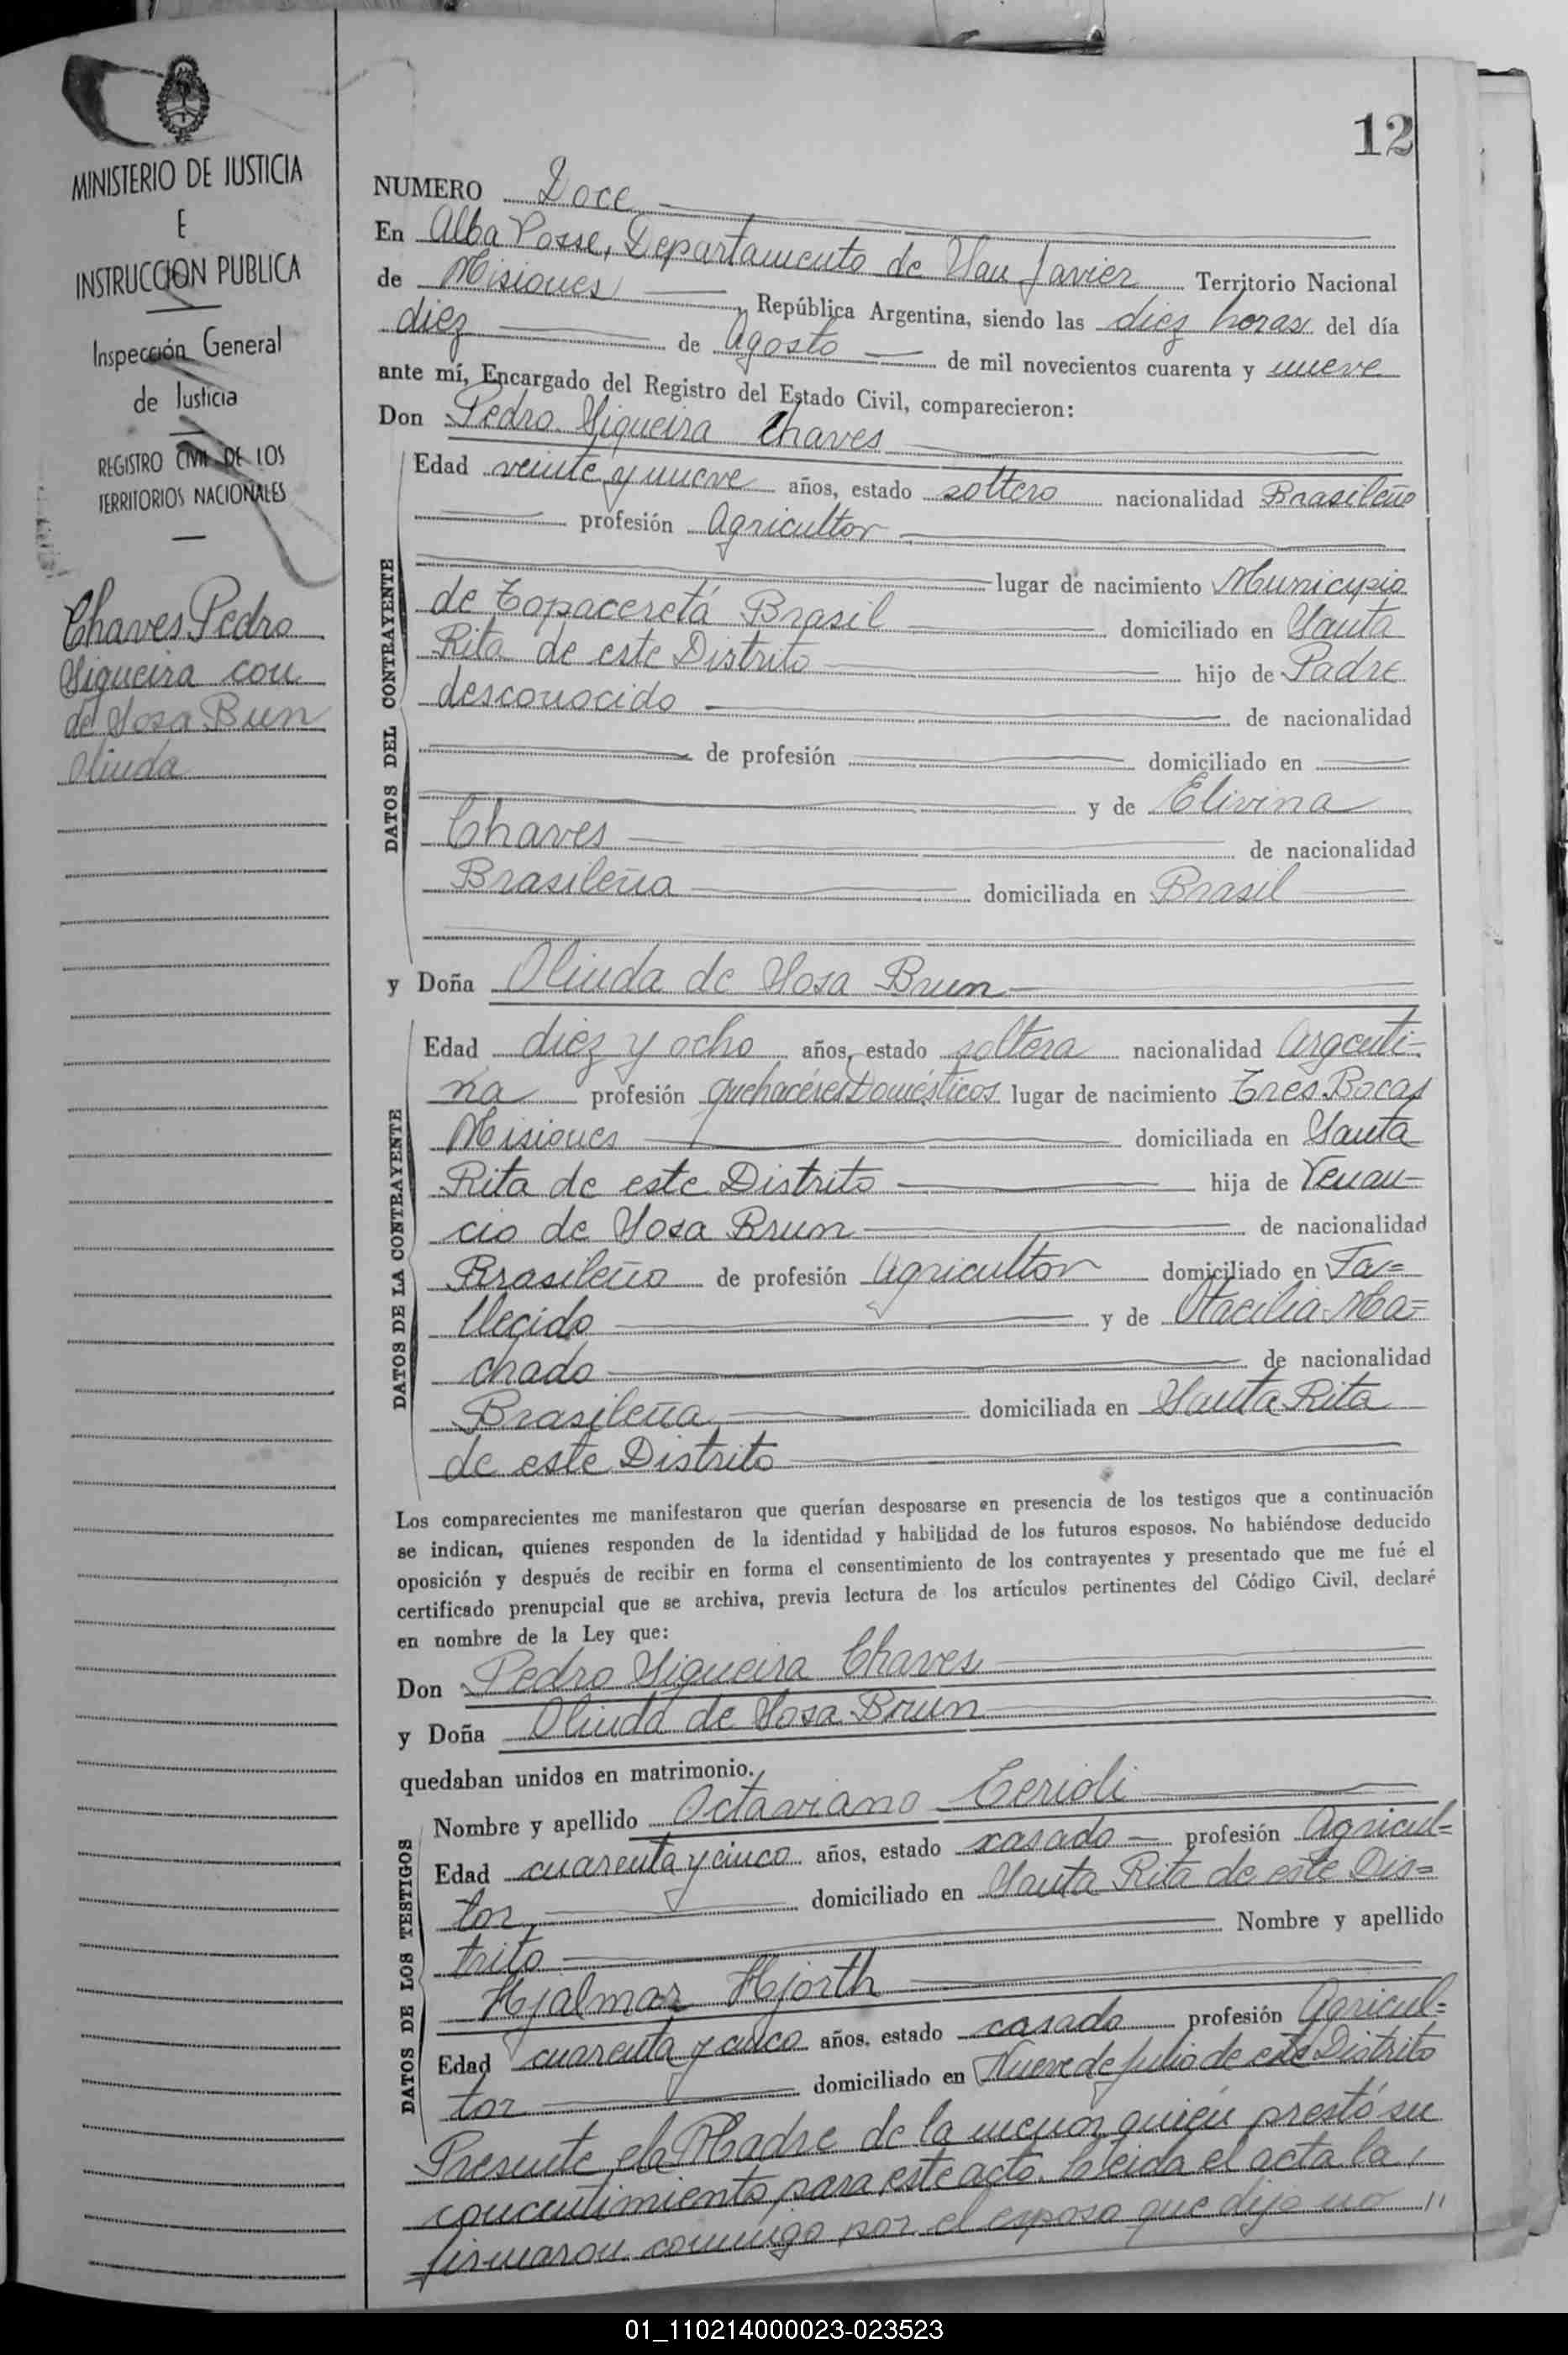 12
MINISTERIO DE JUSTICIA
E
INSTRUCCION PUBLICA
Inspección General
de Justicia
REGISTRO CIVIL DE LOS
TERRITORIOS NACIONALES
Chaves Pedro
Siqueira con
de Sosa Brun
Olinda
NUMERO Doce
En Alba Posse, Departamento de San Javier Territorio Nacional
de Misiones, República Argentina, siendo las diez horas del día
diez de Agosto de mil novecientos cuarenta y nueve
ante mí, Encargado del Registro del Estado Civil, comparecieron:
Don Pedro Siqueira Chaves
DATOS DEL CONTRAYENTE
Edad veinte y nueve años, estado soltero nacionalidad Brasileño
profesión Agricultor
lugar de nacimiento Municipio
de Topaceretá Brasil domiciliado en Santa
Rita de este Distrito hijo de Padre
desconocido de nacionalidad
de profesión domiciliado en
y de Elivina
Chaves de nacionalidad
Brasileña domiciliada en Brasil
y Doña Olinda de Sosa Brun
DATOS DE LA CONTRAYENTE
Edad diez y ocho años, estado soltera nacionalidad Argenti-
na profesión quehacéres Domésticos lugar de nacimiento Tres Bocas
Misiones domiciliada en Santa
Rita de este Distrito hija de Venan-
cio de Sosa Brun de nacionalidad
Brasileño de profesión Agricultor domiciliado en Fa=
llecido y de Otacilia Ma=
chado de nacionalidad
Brasileña domiciliada en Santa Rita
de este Distrito
Los comparecientes me manifestaron que querían desposarse en presencia de los testigos que a continuación
se indican, quienes responden de la identidad y habilidad de los futuros esposos. No habiéndose deducido
oposición y después de recibir en forma el consentimiento de los contrayentes y presentado que me fué el
certificado prenupcial que se archiva, previa lectura de los artículos pertinentes del Código Civil, declaré
en nombre de la Ley que:
Don Pedro Siqueira Chaves
y Doña Olinda de Sosa Brun
quedaban unidos en matrimonio.
DATOS DE LOS TESTIGOS
Nombre y apellido Octaviano Cerioli
Edad cuarenta y cinco años, estado casado profesión Agricul=
tor domiciliado en Santa Rita de este Dis=
trito Nombre y apellido
Hjalmar Hjorth
Edad cuarenta y cinco años, estado casado profesión Agricul=
tor domiciliado en Nueve de Julio de este Distrito
Presente la Madre de la menor quien prestó su
concentimiento para este acto. Leida el acta la
firmaron conmigo por el esposo que dijo no "
01_110214000023-023523